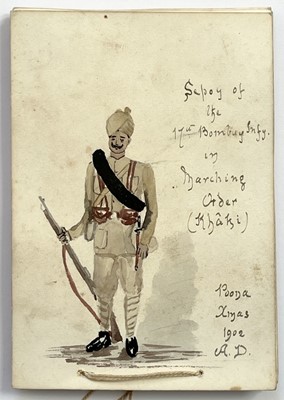 Sepoy of
the
17th Bombay Infy.
in
Marching
Order
(Khâki)
Poona
Xmas
1902
A. D.